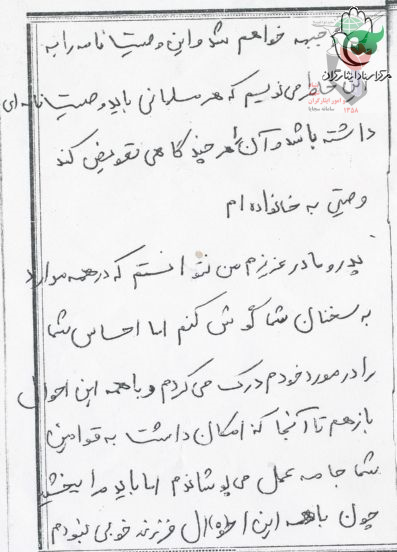 جبهه خواهم شد و این وصیتنامه را به
این خاطر می‌نویسم که هر مسلمانی باید وصیتنامه‌ای
داشته باشد و آن را هر چند گاهی تعویض کند
وصیتی به خانواده ام
پدر و مادر عزیزم من نتوانستم که در همه موارد
به سخنان شما گوش کنم اما احساس شما
را در مورد خودم درک می کردم و با همه این احوال
باز هم تا آنجا که امکان داشت به قوانین
شما جامه عمل می پوشاندم اما باید مرا ببخشید
چون با همه این احوال فرزند خوبی نبودم
مرکز اسناد ایثارگران
امور ایثارگران
سامانه سجایا
۱۳۵۸